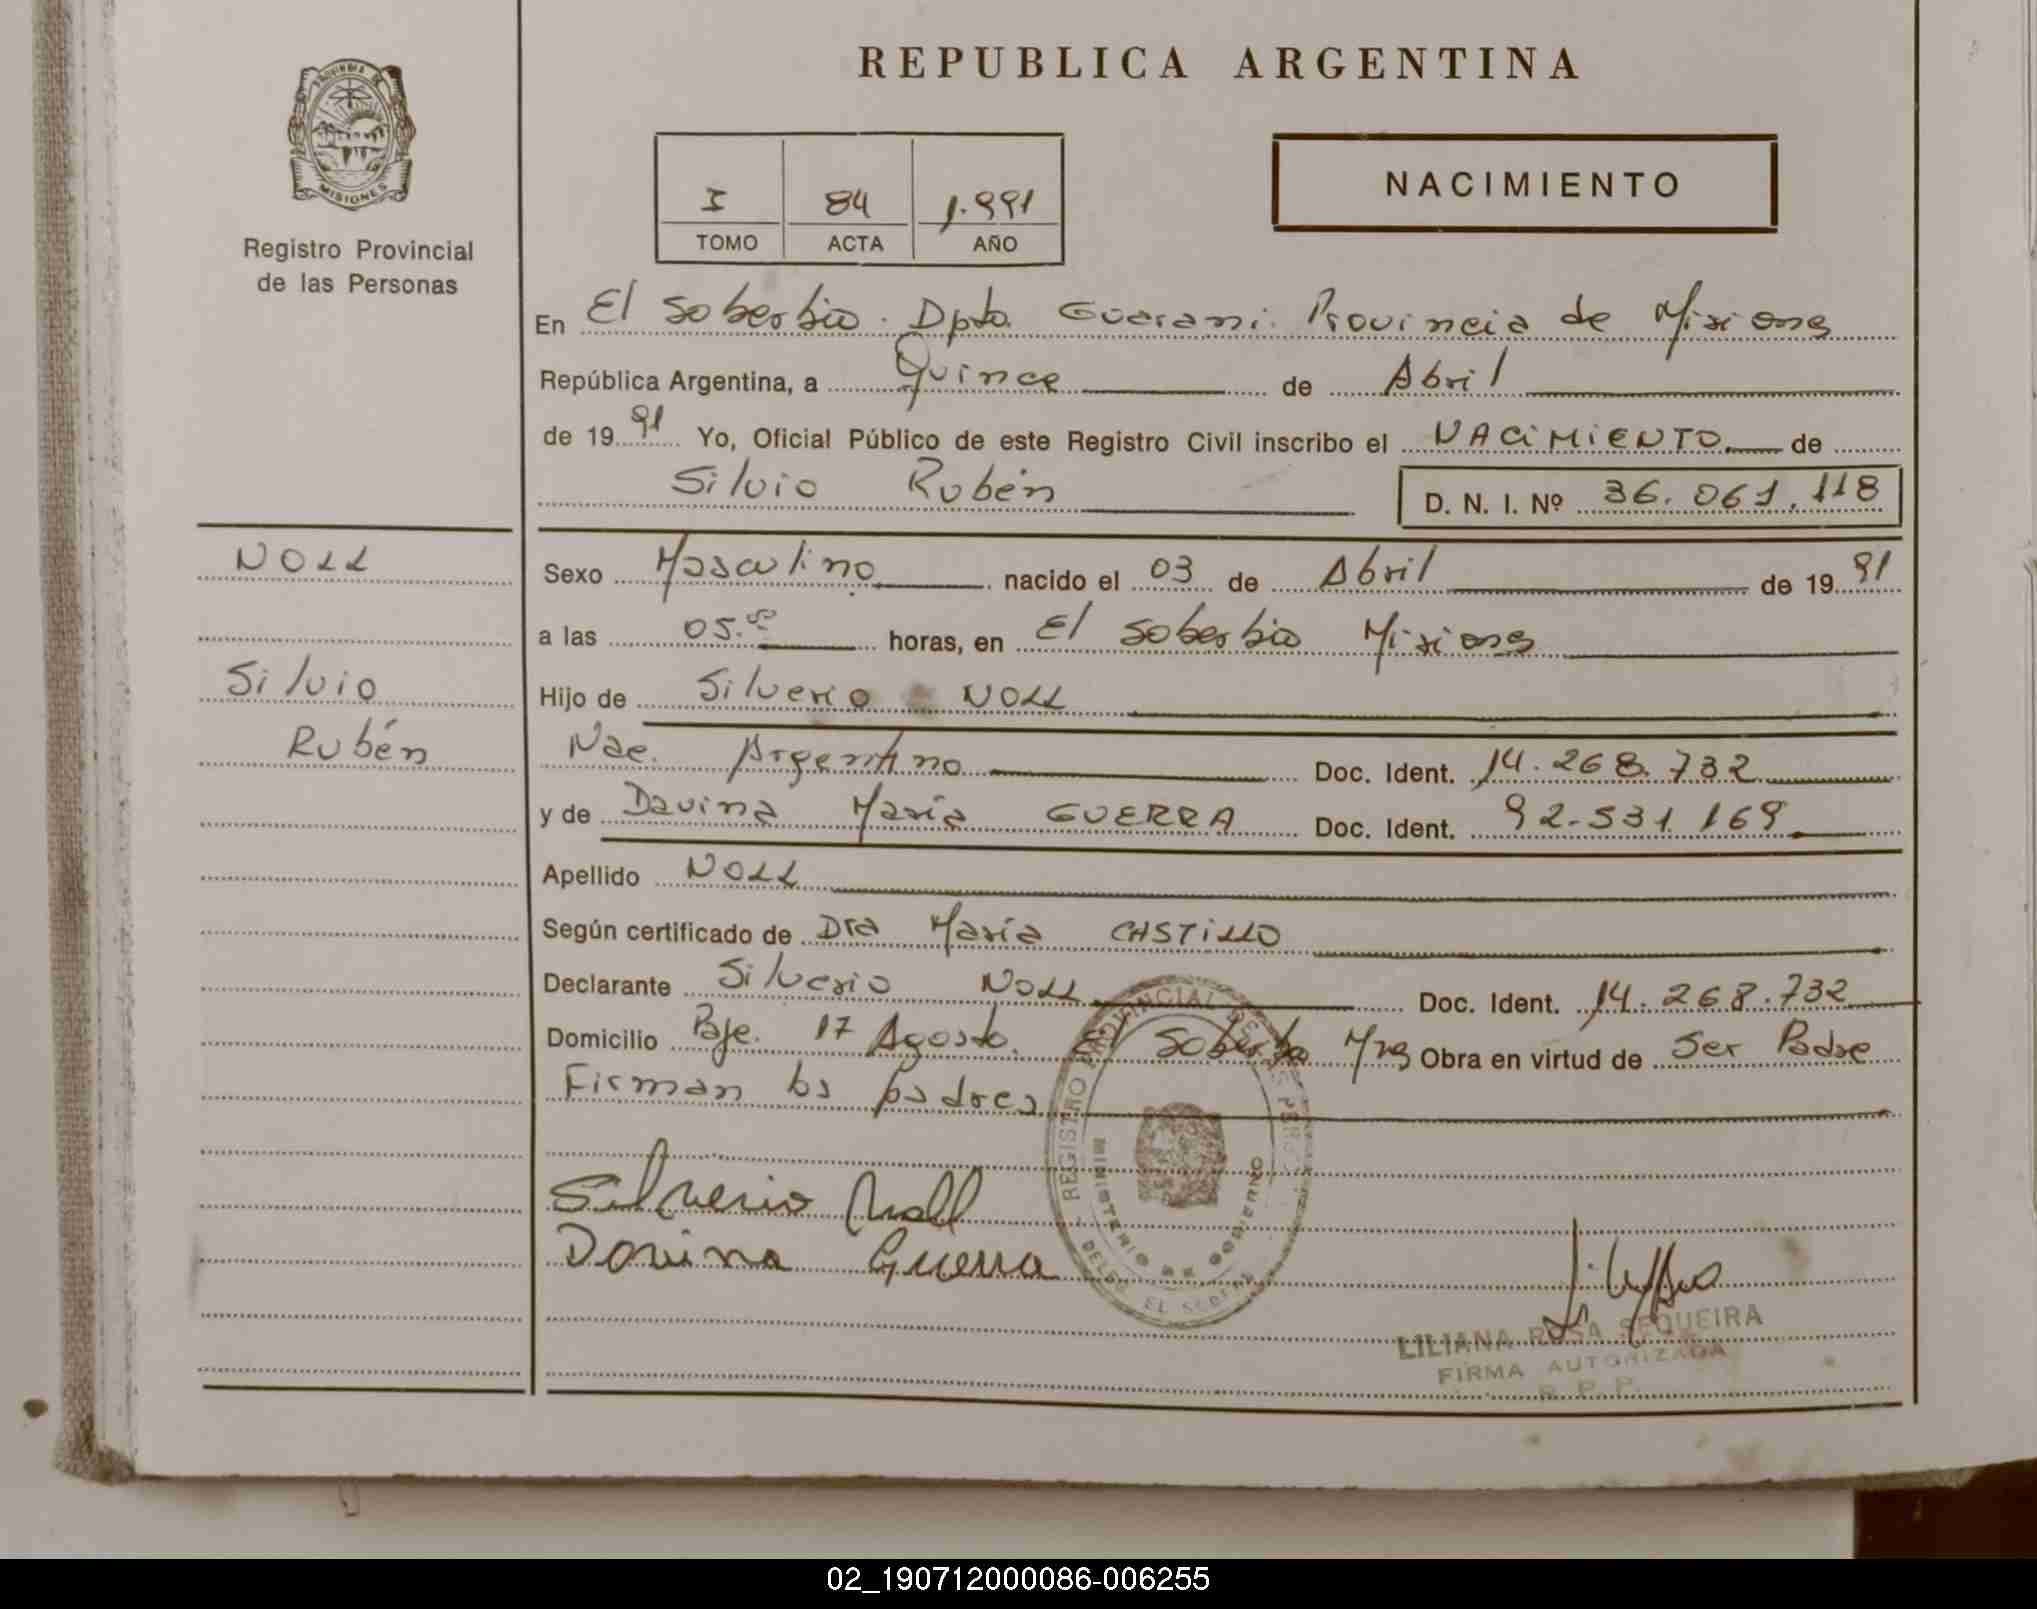 REPUBLICA ARGENTINA
PROVINCIA DE
MISIONES
Registro Provincial
de las Personas
I 84 1.991
TOMO ACTA AÑO
NACIMIENTO
En El Soberbio. Dpto. Guarani. Provincia de Misiones
República Argentina, a Quince de Abril
de 19 91 Yo, Oficial Público de este Registro Civil inscribo el NACIMIENTO de
Silvio Rubén D. N. I. Nº 36.061.118
NOLL
Silvio
Rubén
Sexo Masculino nacido el 03 de Abril de 19 91
a las 05. horas, en El Soberbio Misiones
Hijo de Silverio NOLL
Nac. Argentino Doc. Ident. 14.268.732
y de Davina María GUERRA Doc. Ident. 92.531.169
Apellido NOLL
Según certificado de Dra María CASTILLO
Declarante Silverio NOLL Doc. Ident. 14.268.732
Domicilio Pje. 17 Agosto. El Soberbio Mnes Obra en virtud de Ser Padre
Firman los padres
Silverio Noll
Davina Guerra
REGISTRO PROVINCIAL DE
MINISTERIO DE GOBIERNO
DELEG. EL
LILIANA ROSA SEQUEIRA
FIRMA AUTORIZADA
R. P. P.
02_190712000086-006255